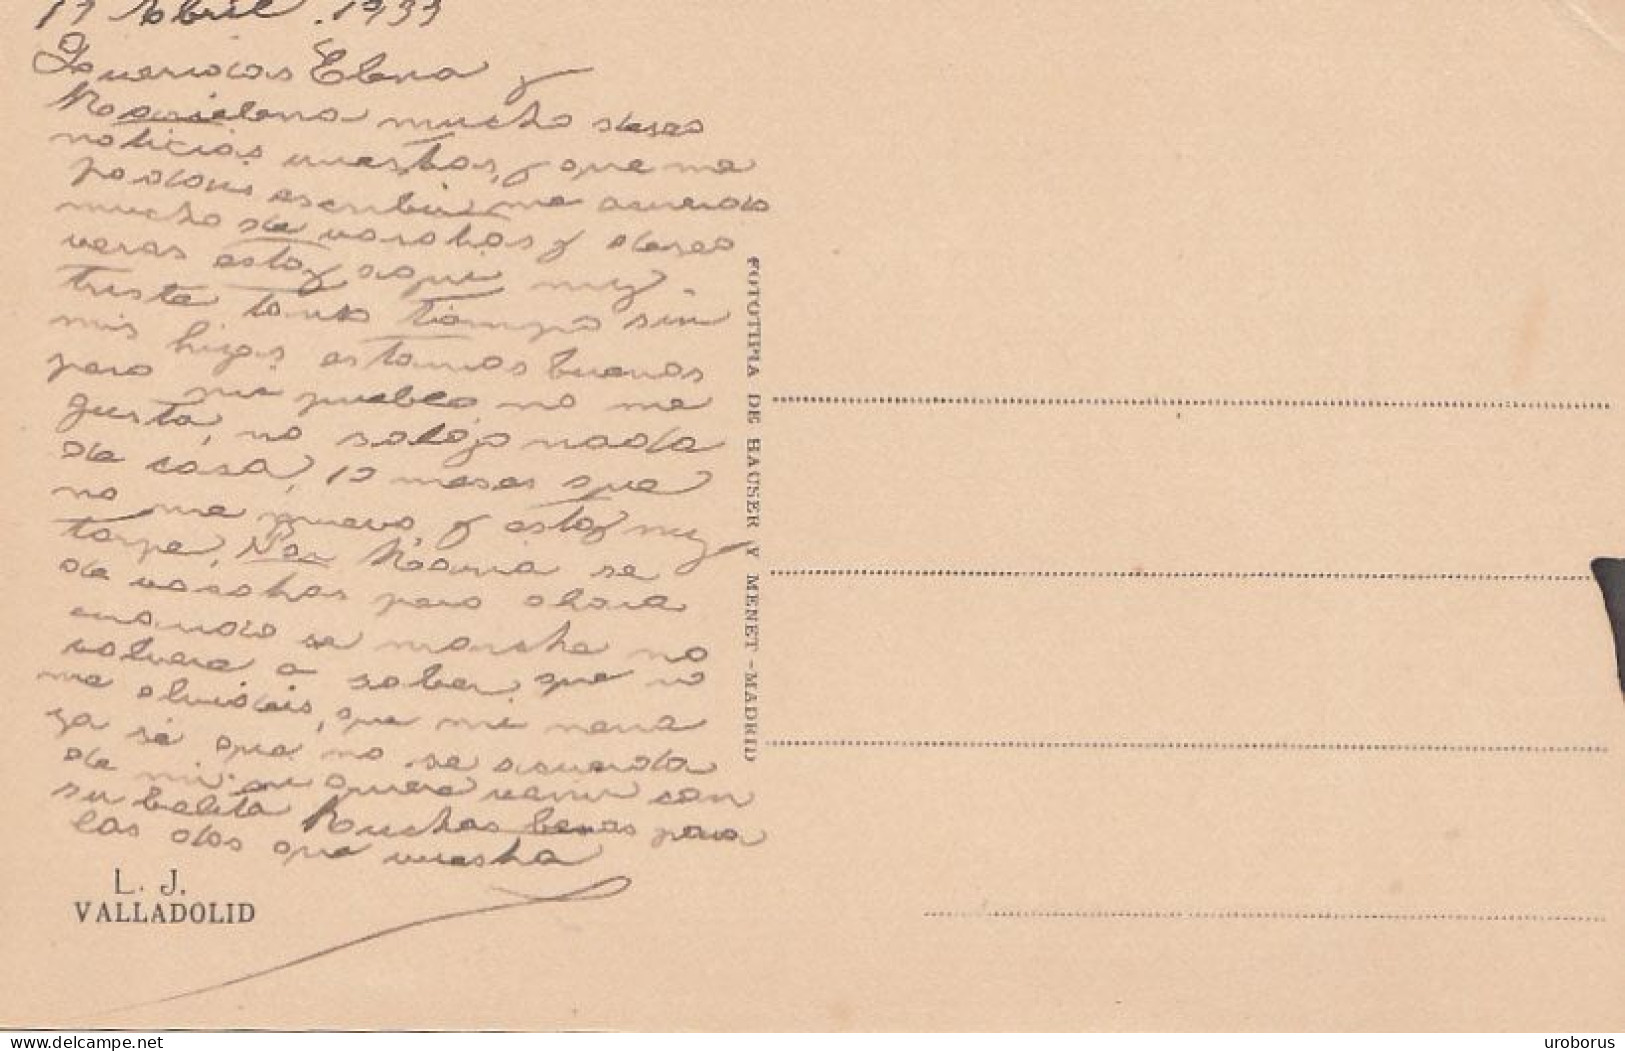 17 Abril. 1933
Queridas Elena y
Marcelana mucho deseo
noticias vuestras, y que me
podais escribir, me acuerdo
mucho de vosotras y deseo
veros estoy aqui muy
triste tanto tiempo sin
mis hijas estamos buenos
pero mi pueblo no me
gusta, no salgo nada
de casa, 10 meses que
no me muevo, y estoy muy
torpe, Por Maria se
de vosotras pero ahora
cuando se marche no
volvere a saber que no
me olvideis, que mi nena
ya sé que no se acuerda
de mi, si quiere venir con
su belita Muchos besos para
las dos que vuestra
L. J.
VALLADOLID
FOTOTIPIA DE HAUSER Y MENET - MADRID
www.delcampe.net
uroborus